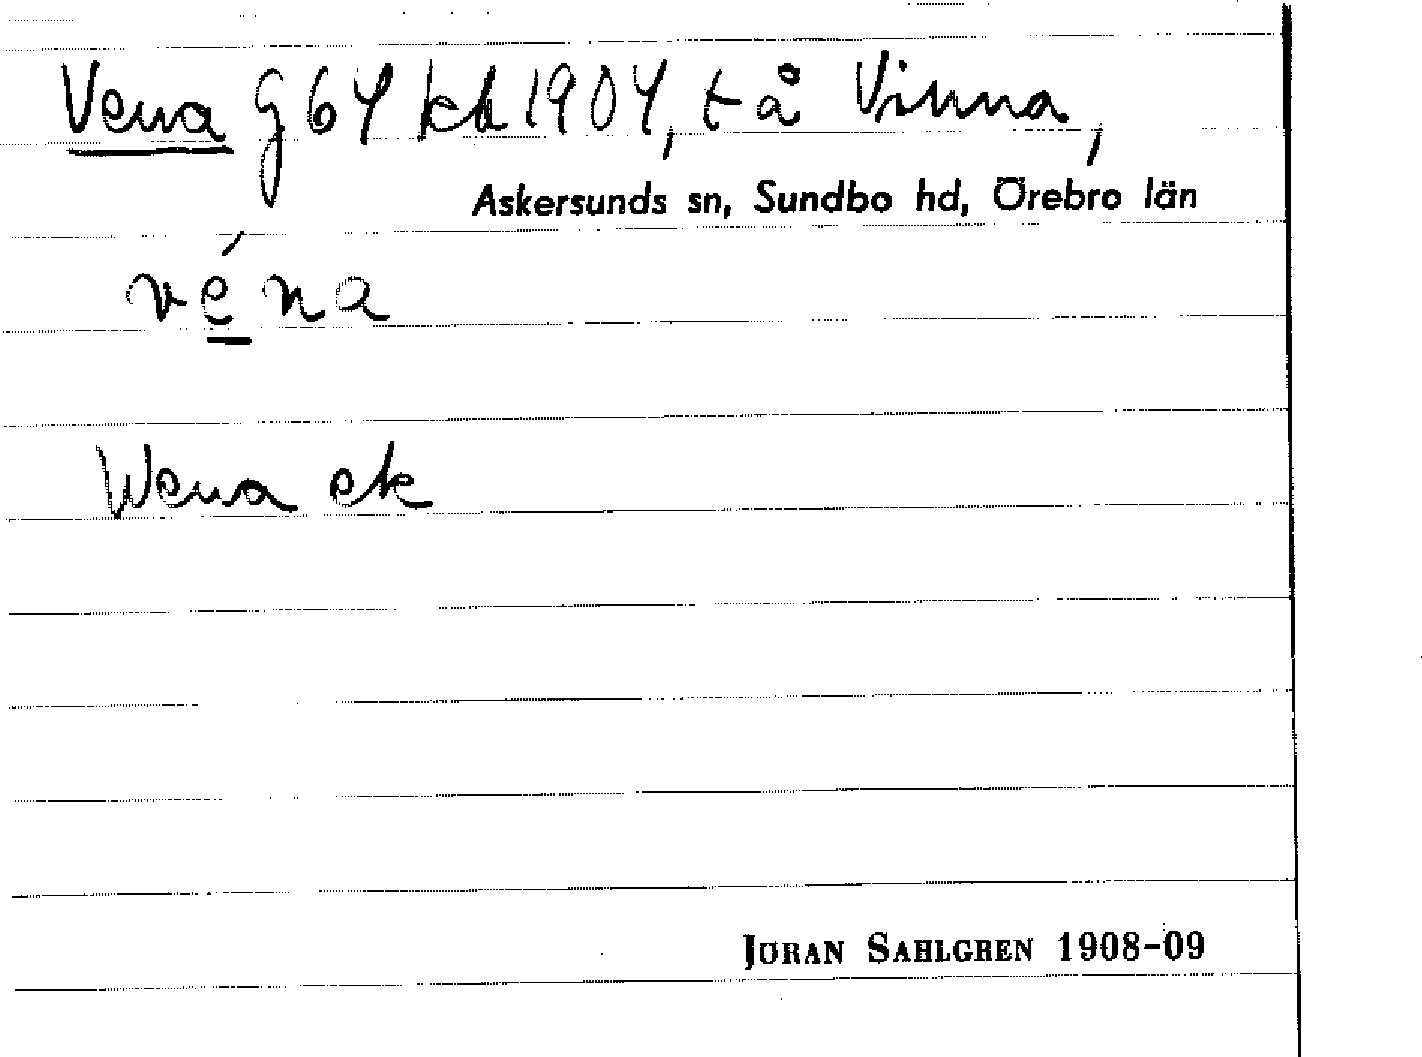 Vena G 64 kb 1904, t å Vinna,
Askersunds sn, Sundbo hd, Örebro län
véna
Wena ek
JÖRAN SAHLGREN 1908-09